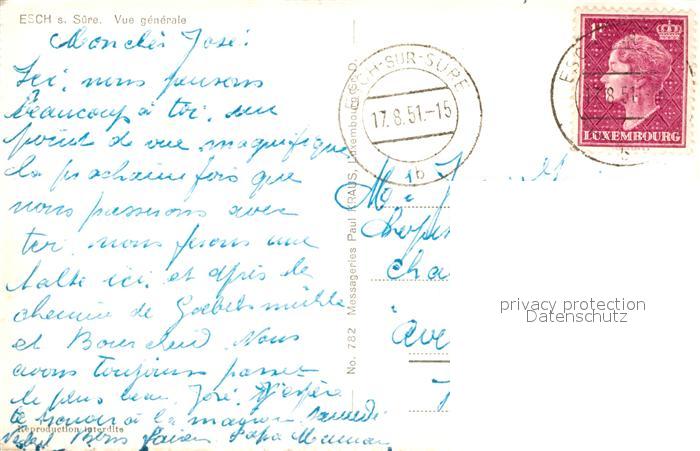 ESCH s. Sûre. Vue générale
Mon cher José.
Ici, nous pensons
beaucoup à toi, un
point de vue magnifique
la prochaine fois que
nous passerons avec
toi nous ferons une
halte ici, et après le
chemin de Goebelsmühle
et Bourscheid. Nous
avons toujours passé
le plus beau. José j'espère
te trouver à la maison samedi
Papa Maman
Reproduction interdite
No. 782 Messageries Paul KRAUS, Luxembourg
ESCH-SUR-SURE
17.8.51.-15
b
1F
LUXEMBOURG
ESC
17.8.51
b
privacy protection
Datenschutz